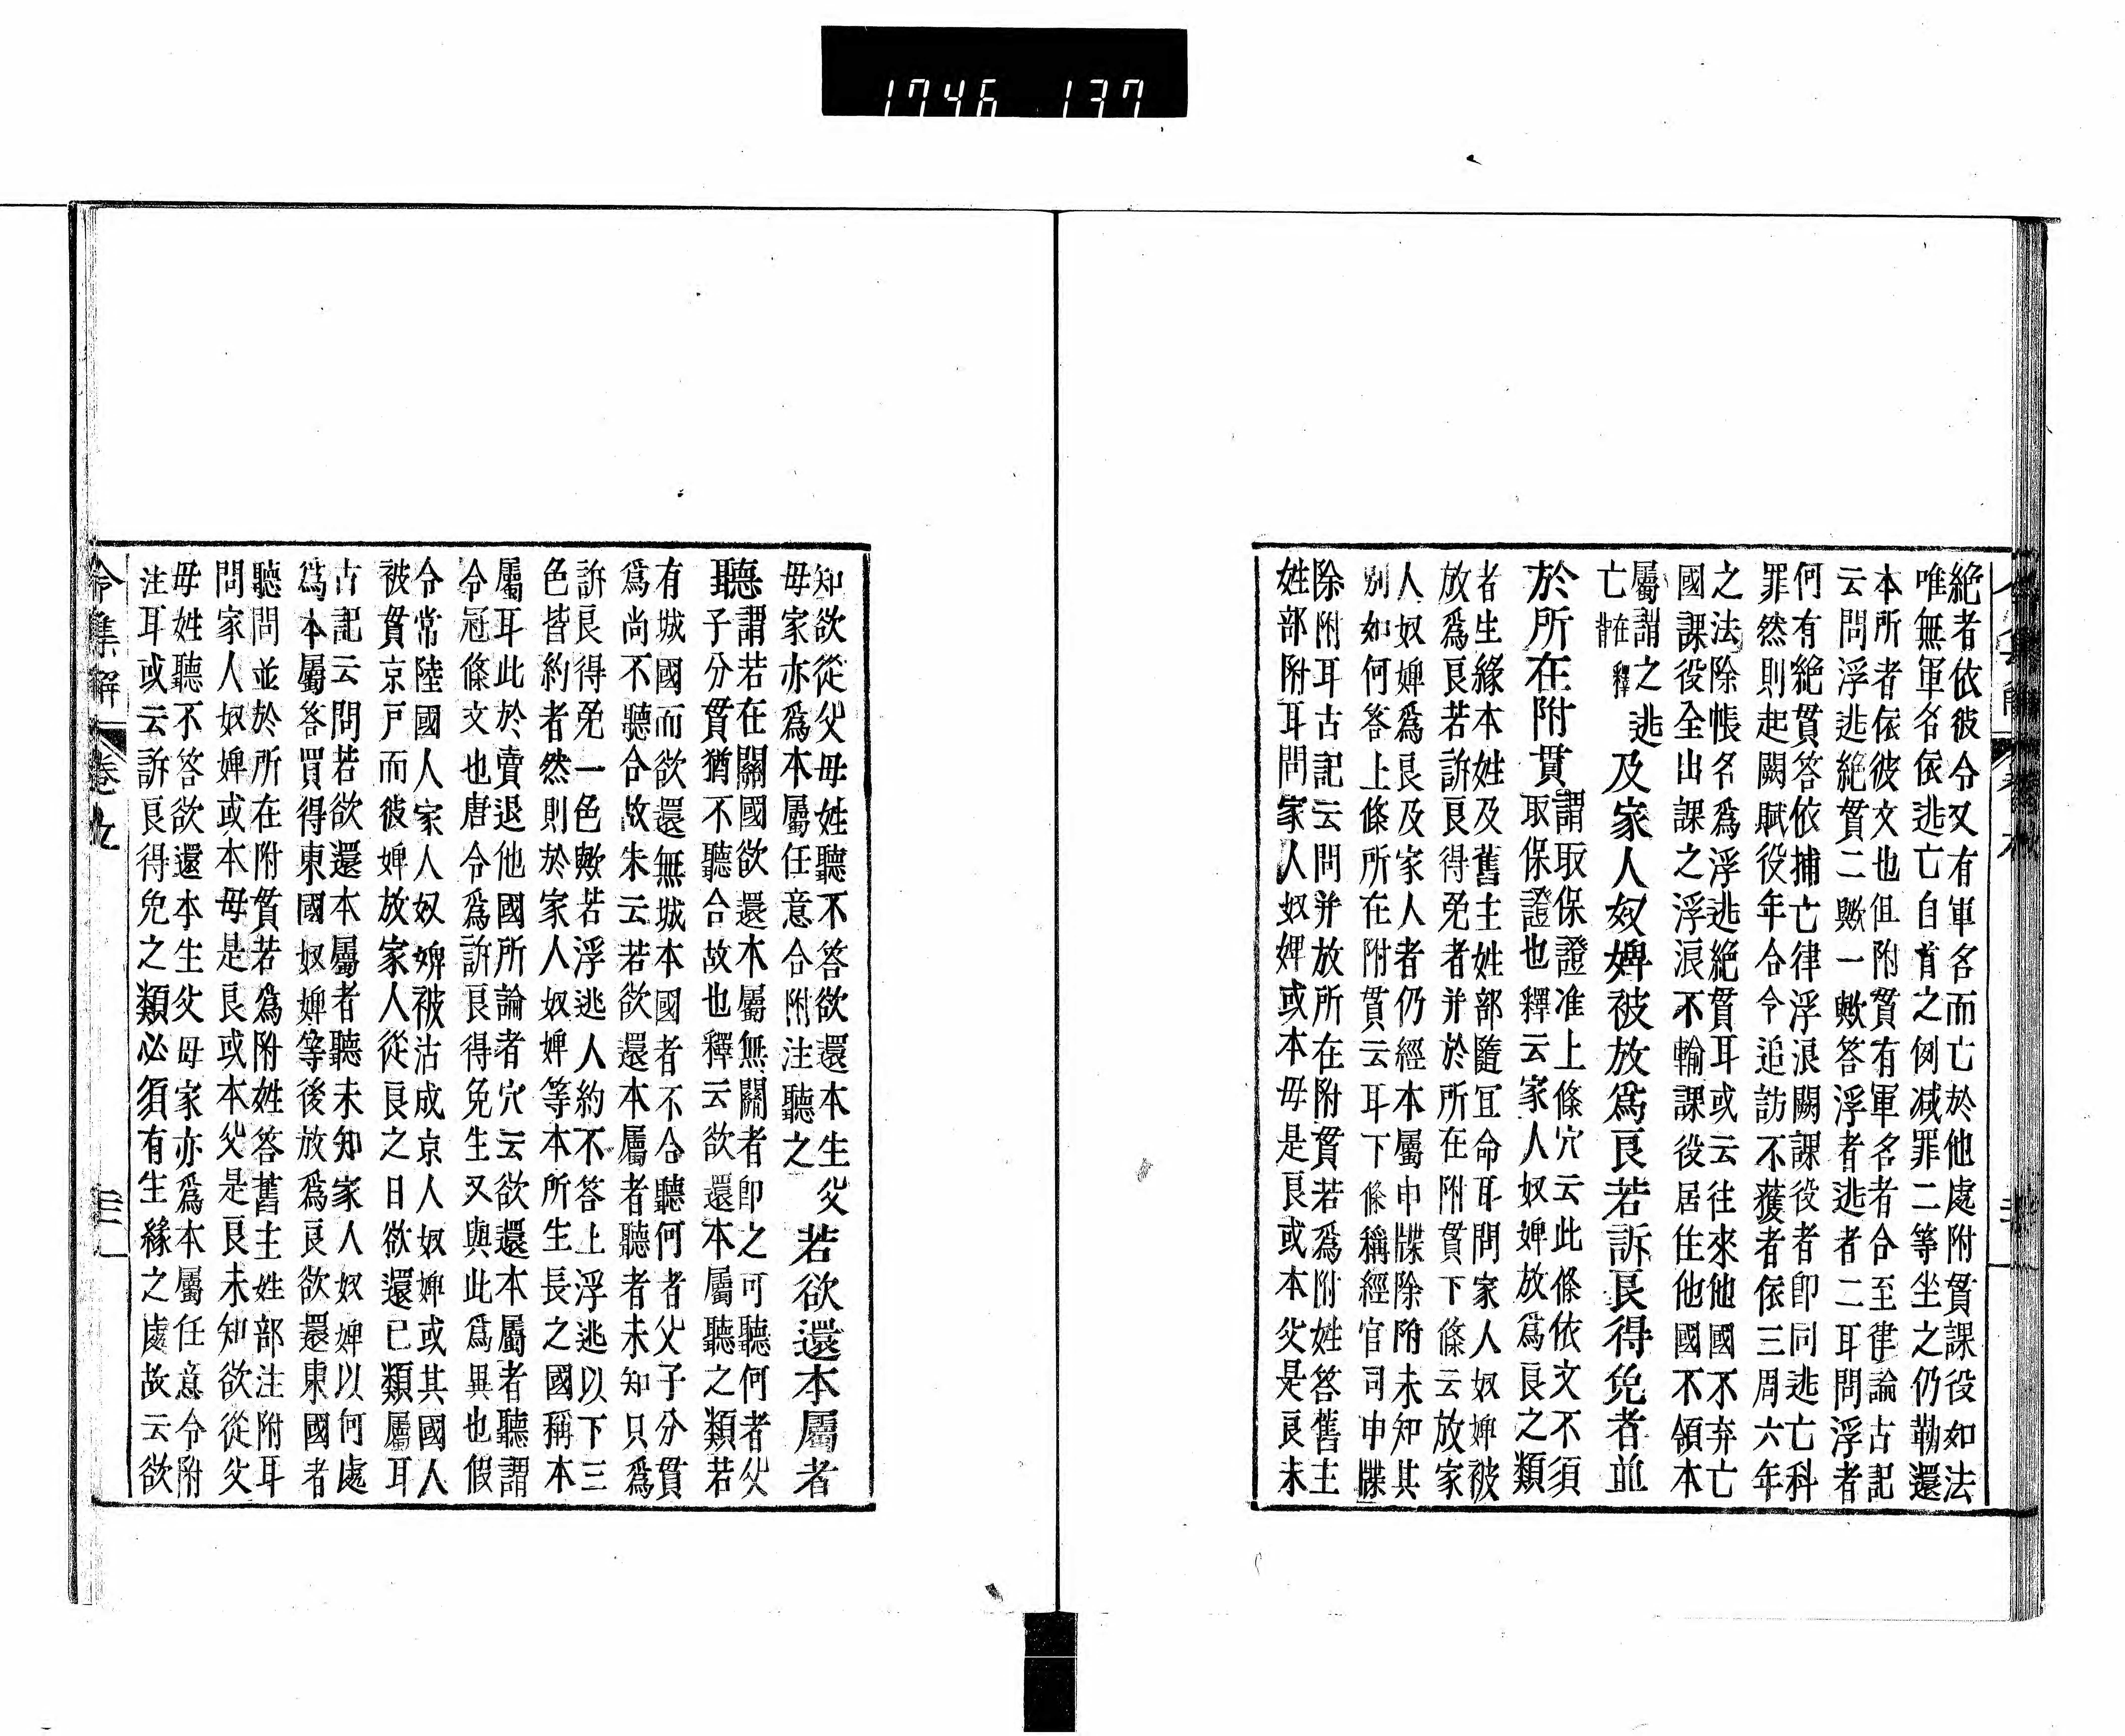 1746 137
絶者依彼令又有軍名而亡於他處附貫課役如法
唯無軍名依逃亡自首之例减罪二等坐之仍勒還
本所者依彼文也但附貫有軍名者合至律論古記
云問浮逃絶貫二歟一歟答浮者逃者二耳問浮者
何有絶貫答依捕亡律浮浪闕課役者即同逃亡科
罪然則起闕賦役年合令追訪不獲者依三周六年
之法除帳名爲浮逃絶貫耳或云往來他國不弃亡
國課役全出課之浮浪不輸課役居住他國不領本
屬謂之逃
亡釋
在背
及家人奴婢被放爲良若訴良得免者並
於所在附貫
謂取保證准上條穴云此條依文不須
取保證也釋云家人奴婢放爲良之類
者生緣本姓及舊主姓部隨冝命耳問家人奴婢被
放爲良若訴良得免者并於所在附貫下條云放家
人奴婢爲良及家人者仍經本屬申牒除附未知其
别如何答上條所在附貫云耳下條稱經官司申牒
除附耳古記云問并放所在附貫若爲附姓答舊主
姓部附耳問家人奴婢或本毋是良或本父是良未
知欲從父母姓聽不答欲還本生父
毋家亦爲本屬任意合附注聽之
若欲還本屬者
聽
謂若在關國欲還本屬無關者即之可聽何者父
子分貫猶不聽合故也釋云欲還本屬聽之類若
有城國而欲還無城本國者不合聽何者父子分貫
爲尚不聽合故朱云若欲還本屬者聽者未知只爲
訴良得免一色歟若浮逃人約不答上浮逃以下三
色皆約者然則於家人奴婢等本所生長之國稱本
屬耳此於賣退他國所論者穴云欲還本屬者聽謂
令冠條文也唐令爲訴良得免生又與此爲異也假
令常陸國人家人奴婢被沽成京人奴婢或其國人
被貫京戸而彼婢放家人從良之日欲還已類屬耳
古記云問若欲還本屬者聽未知家人奴婢以何處
爲本屬答買得東國奴婢等後放爲良欲還東國者
聽問並於所在附貫若爲附姓答舊主姓部注附耳
問家人奴婢或本母是良或本父是良未知欲從父
毋姓聽不答欲還本生父母家亦爲本屬任意令附
注耳或云訴良得免之類必須有生緣之處故云欲
令集解 卷九